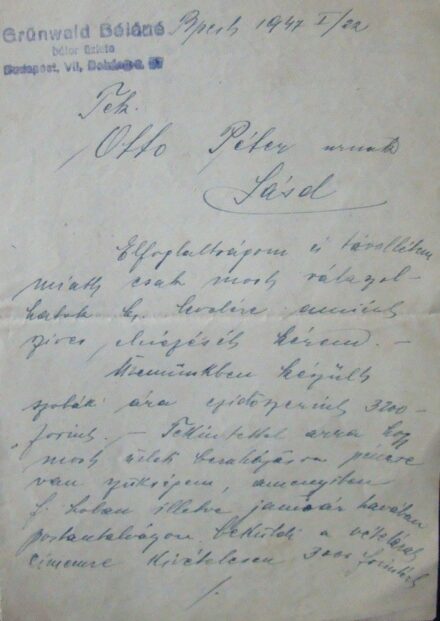 Grünwald Béláné
bútor üzlete
Budapest, VII, Dohány u.
Bpest, 1947 I/22
Tek.
Otto Péter urnak
Sásd
Elfoglaltságom és távollétem
miatt csak most válaszol-
hatok b. levelére amiért
szíves elnézését kérem. –
Üzemünkben készült
szobák ára egidőszerint 3200
forint. – Tekintettel arra hogy
most üzleti beruházásra pénzre
van szükségem, amenyiben
f. hóban illetve január havában
postautalványon beküldi a vételárat
címemre kivételesen 3000 forintért